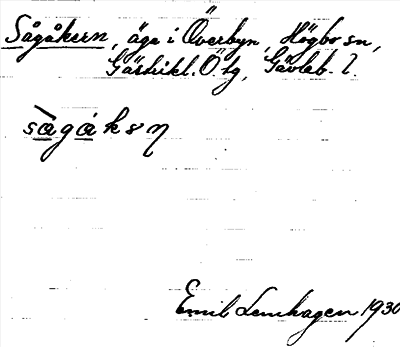 Sågåkern, äga i Överbyn, Högbo sn,
Gästrikl. Ö. tg, Gävleb. l.
sàgákeṇ
Emil Lemhagen 1930